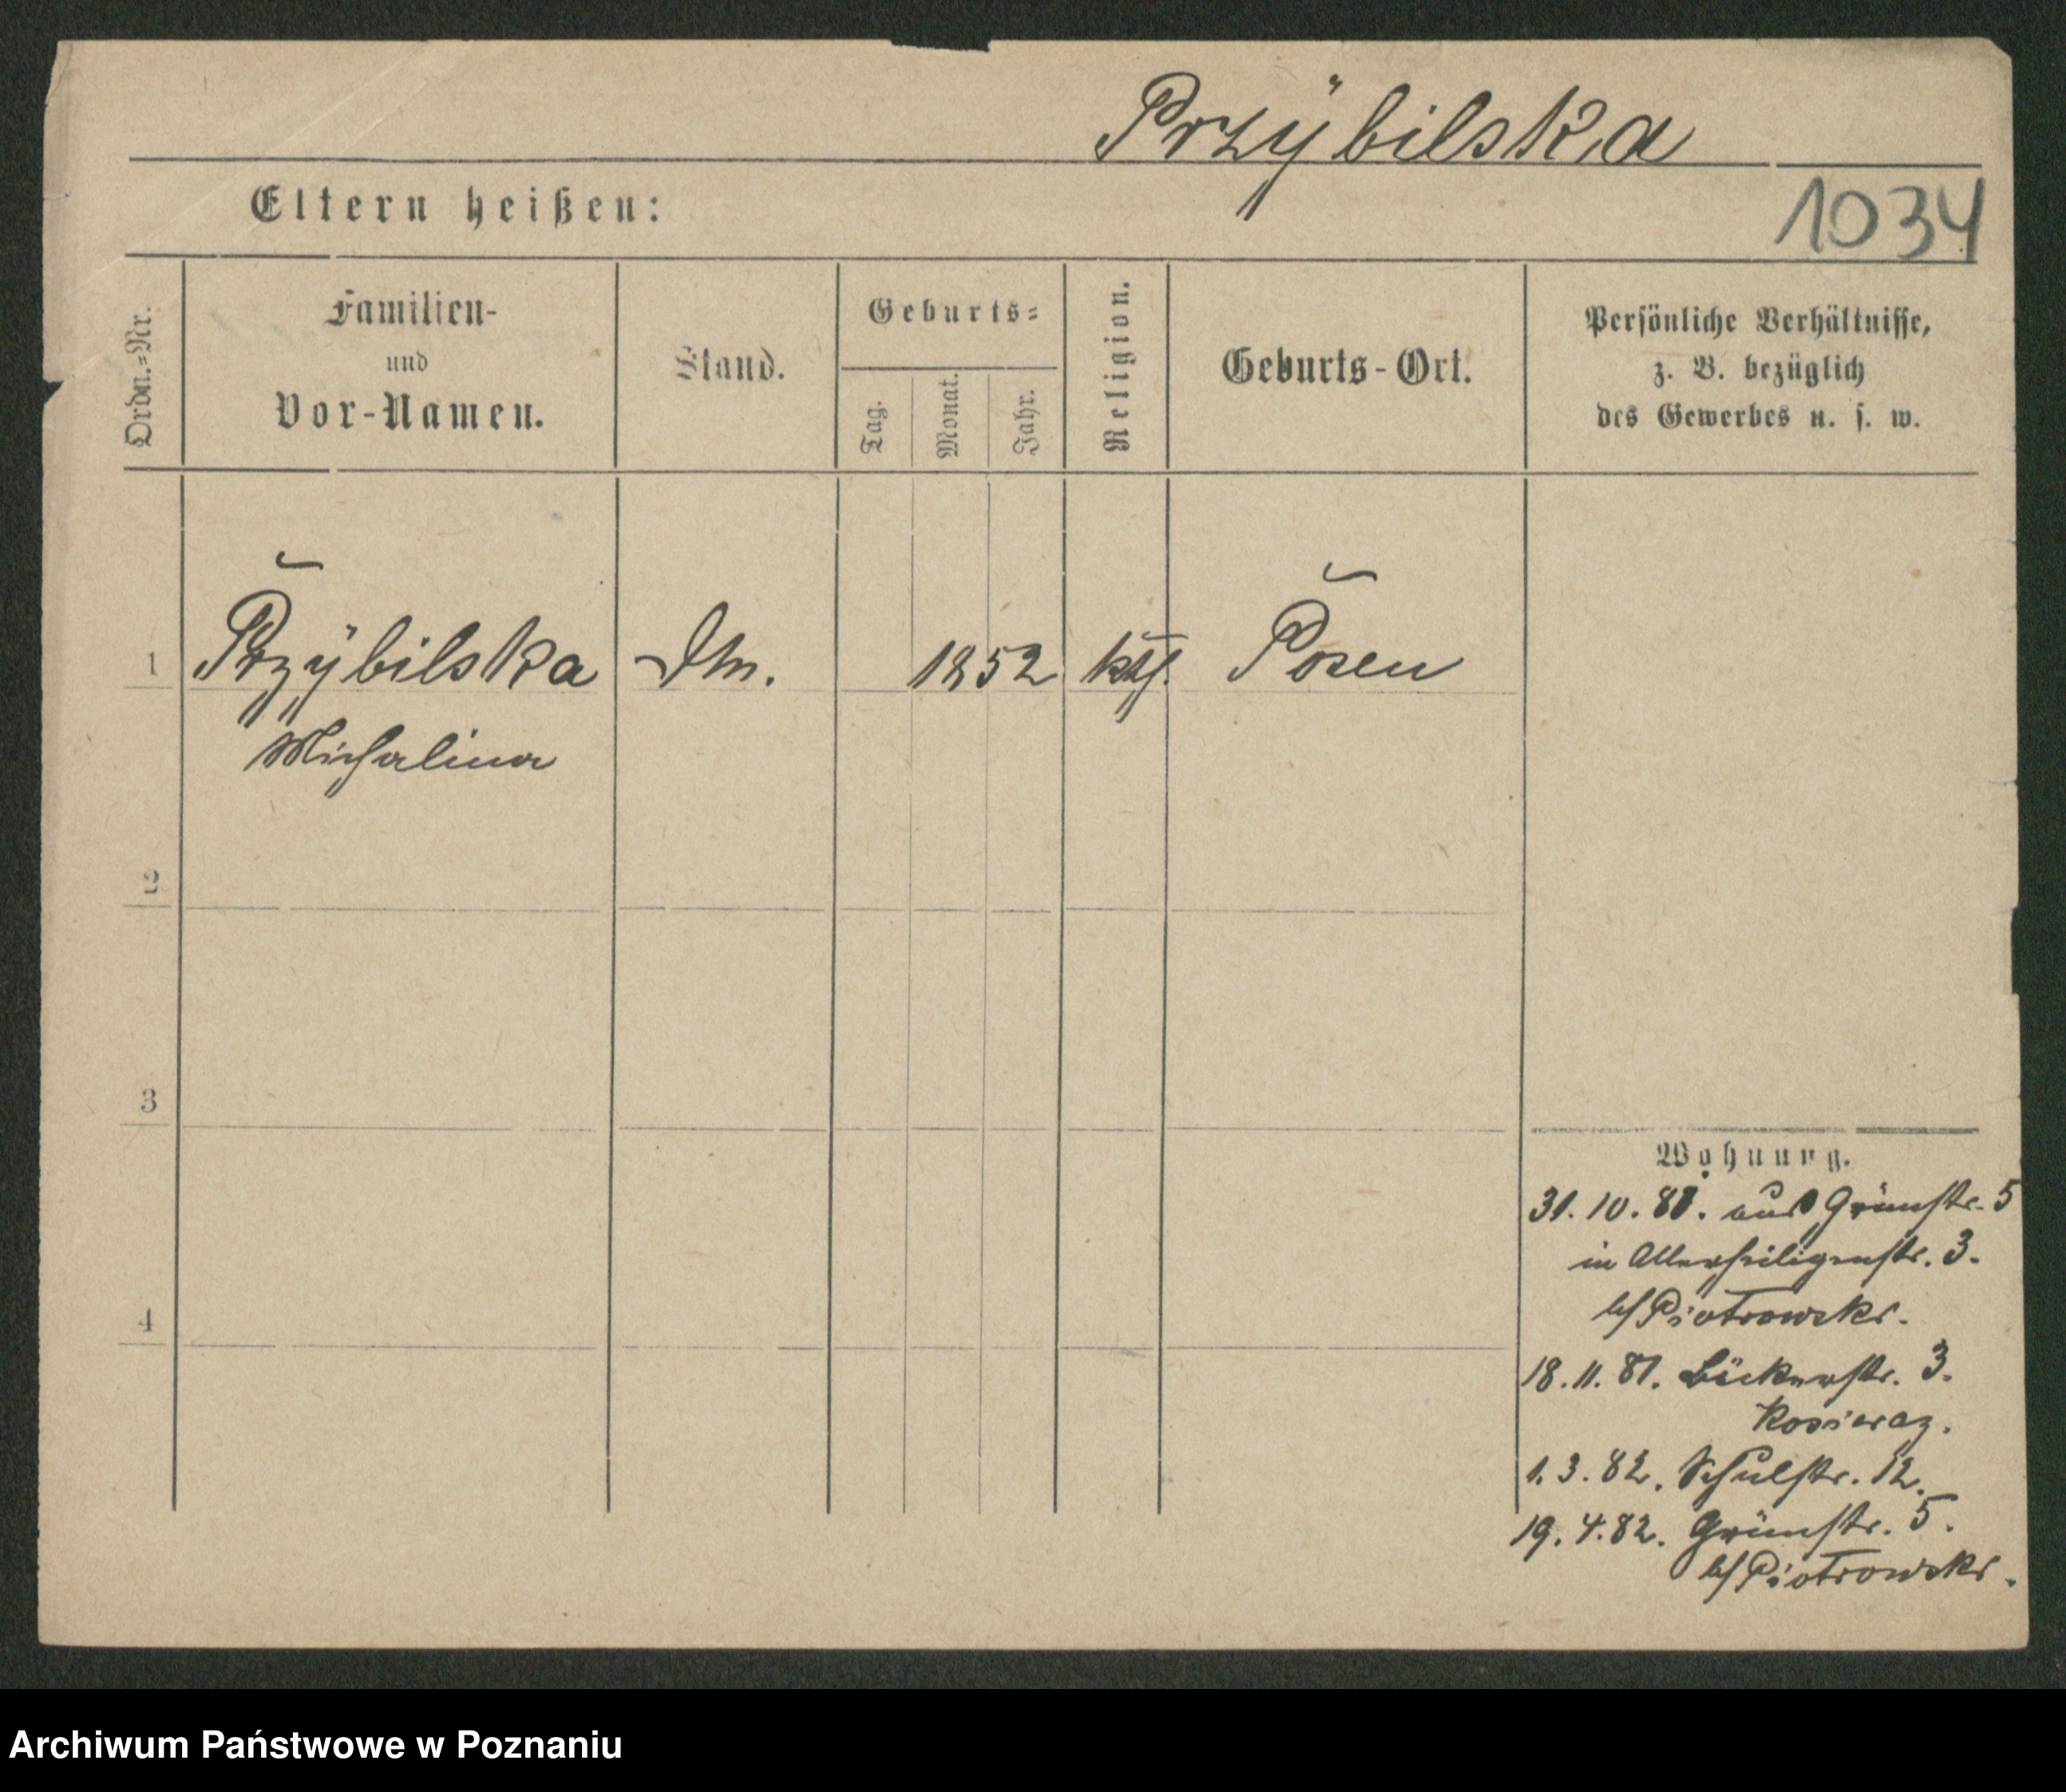 Przÿbilska
Eltern heißen:
1034
Ordn.=Nr.
Familien-
und
Vor-Namen.
Stand.
Geburts=
Tag.
Monat.
Jahr.
Religion.
Geburts-Ort.
Persönliche Verhältnisse,
z. B. bezüglich
des Gewerbes u. s. w.
1 Przÿbilska 1852 kth. Posen
Michalina
2
3
4
Wohnung.
31.10.81. aus Grünstr. 5
in Allerheiligenstr. 3.
b/ Piotrowski.
18.11.81. Bäckerstr. 3.
1.3.82. Schulstr. 12.
19.4.82. Grünstr. 5.
b/ Piotrowski.
Archiwum Państwowe w Poznaniu